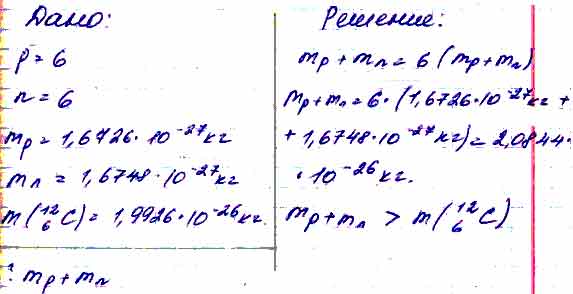 Дано:
p = 6
n = 6
mp = 1,6726·10⁻²⁷кг
mn = 1,6748·10⁻²⁷кг
m(¹²₆C) = 1,9926·10⁻²⁶кг.
? mp+mn
Решение:
mp+mn = 6(mp+mn)
mp+mn = 6·(1,6726·10⁻²⁷кг +
+ 1,6748·10⁻²⁷кг) = 2,0844·
·10⁻²⁶кг.
mp+mn > m(¹²₆C)